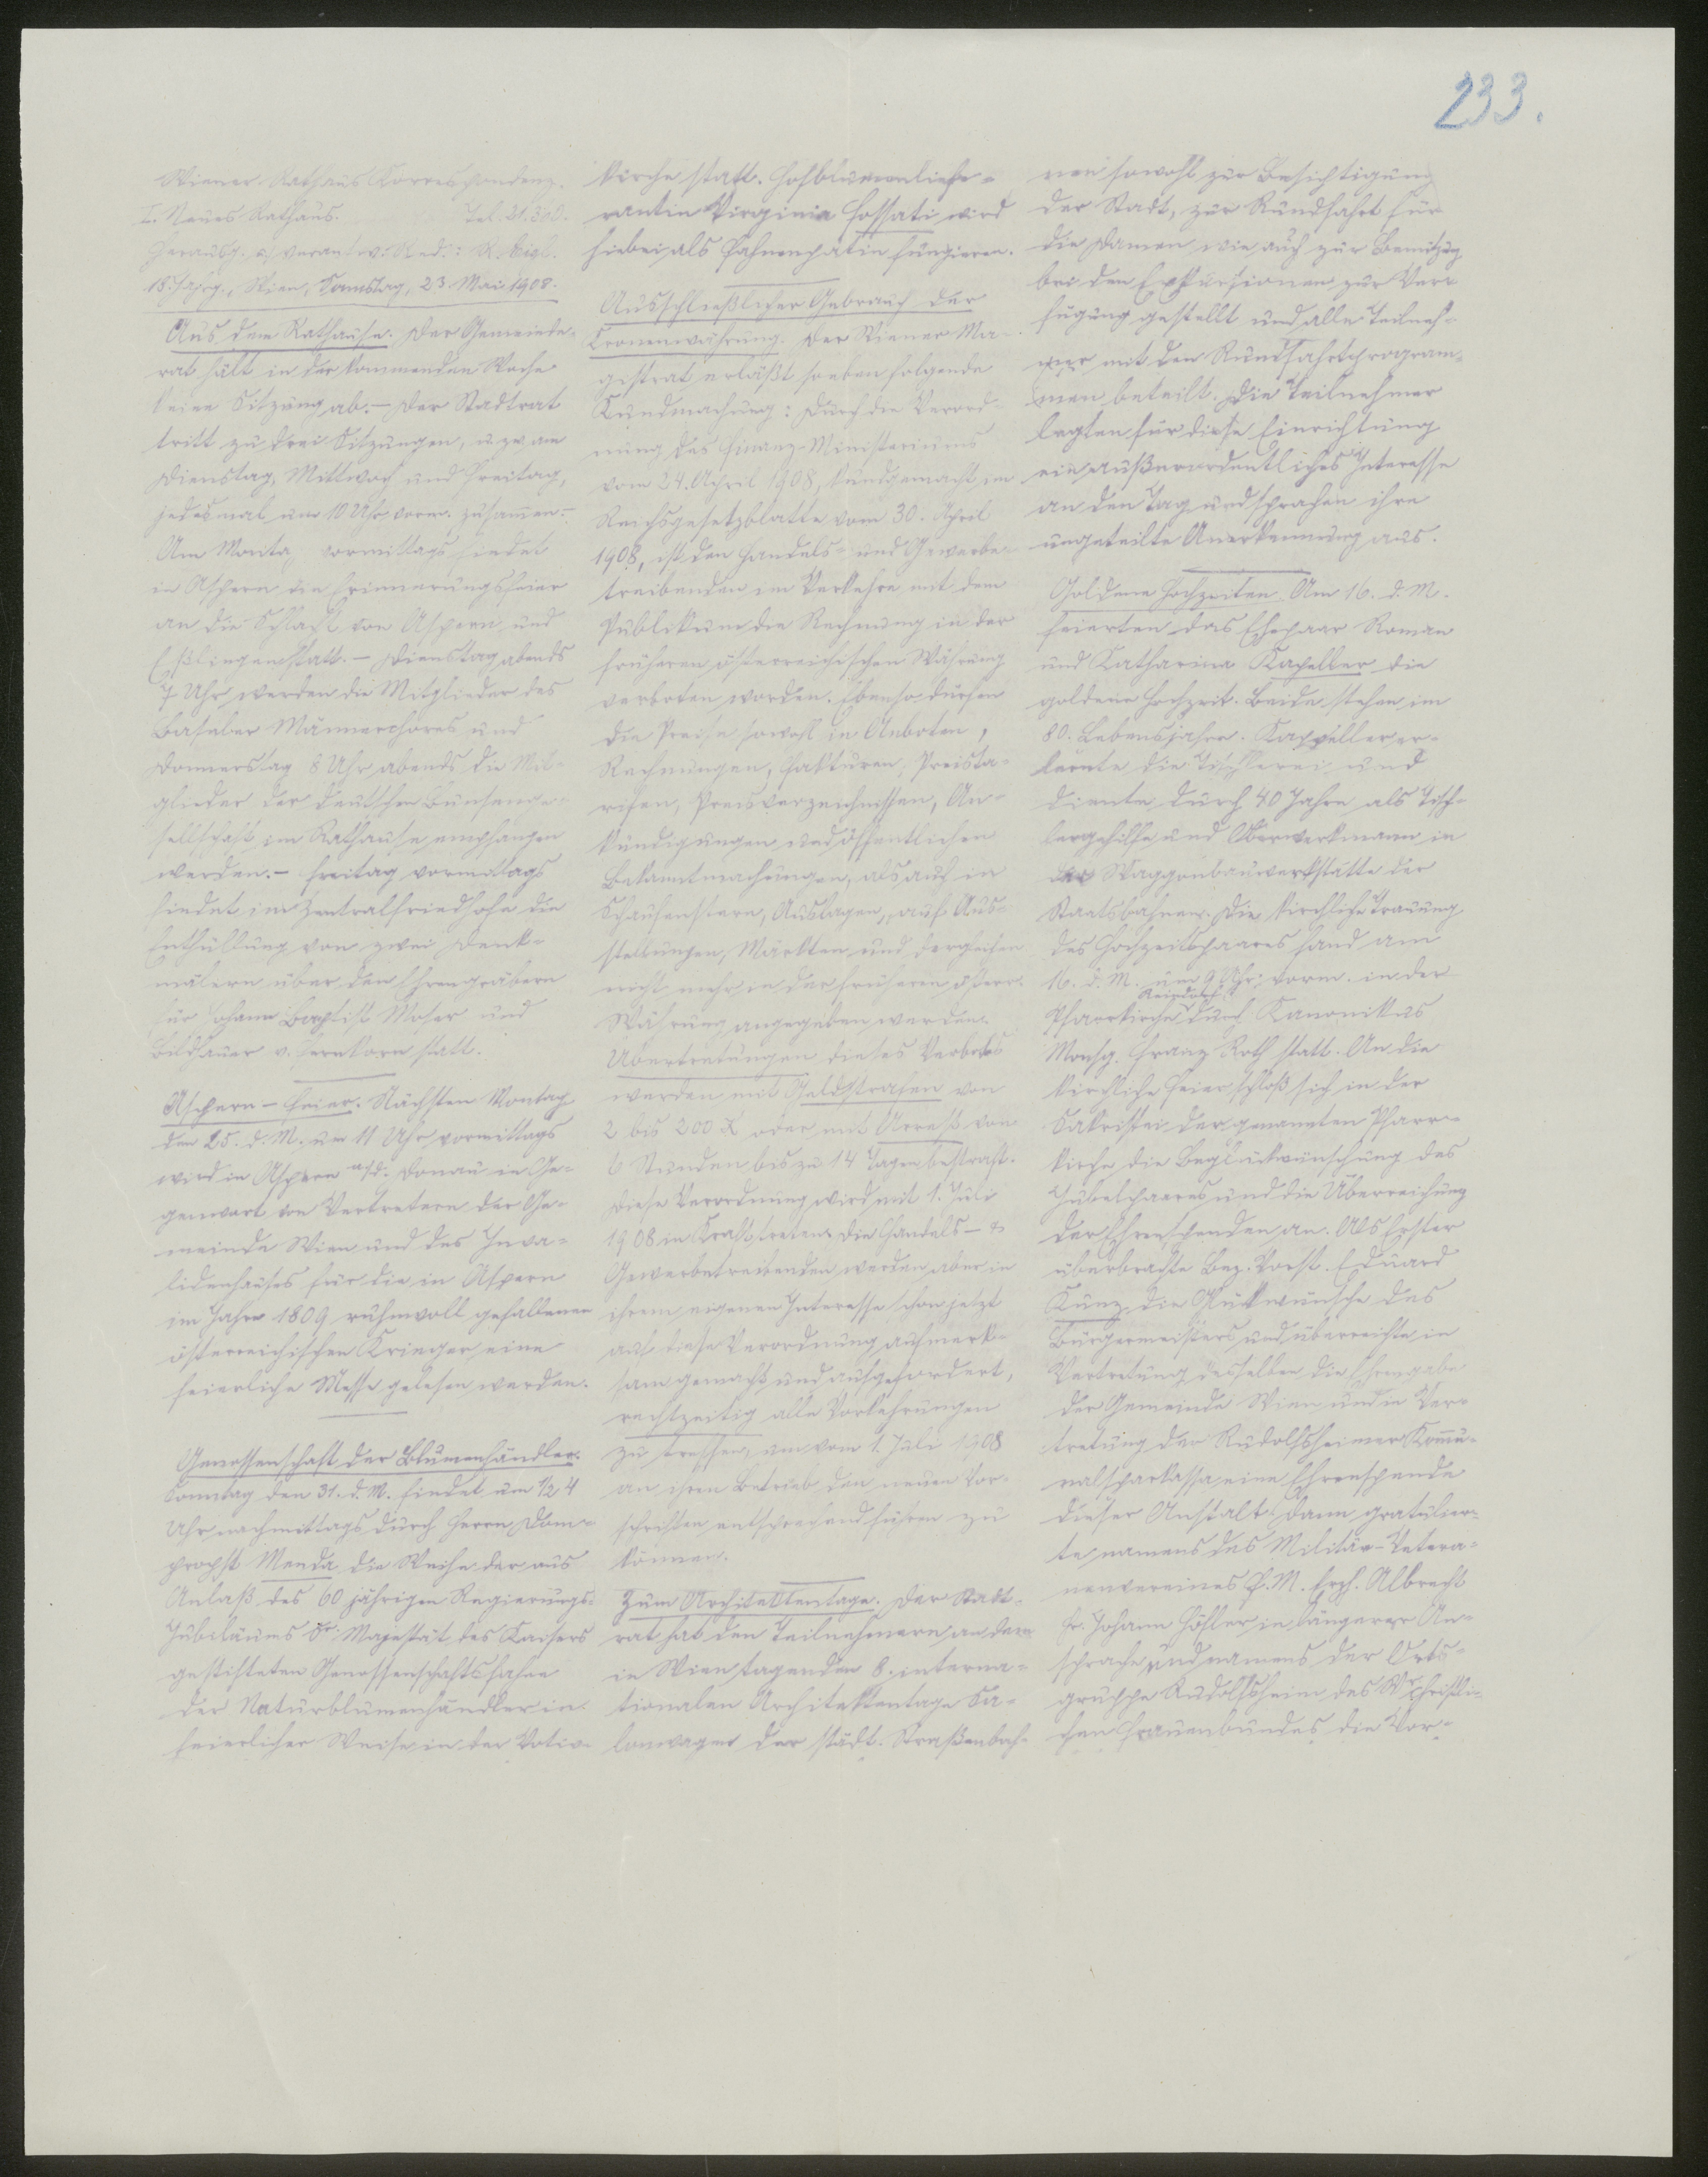 233.
Wiener Rathaus Korrespondenz.
I. Neues Rathaus. Tel. 21.300.
Herausg. u. verantw. Red.: R. Eigl.
18. Jahrg., Wien, Samstag, 23. Mai 1908.
Aus dem Rathause. Der Gemeinde-
rat hält in der kommenden Woche
keine Sitzung ab. – Der Stadtrat
tritt zu drei Sitzungen, u. zw. am
Dienstag, Mittwoch und Freitag,
jedesmal um 10 Uhr vorm. zusammen. –
Am Montag vormittags findet
in Aspern die Erinnerungsfeier
an die Schlacht von Aspern und
Eßlingen statt. – Dienstag abends
7 Uhr werden die Mitglieder des
Baseler Männerchores und
Donnerstag 8 Uhr abends die Mit-
glieder der deutschen Bunsenge-
sellschaft im Rathause empfangen
werden. – Freitag vormittags
findet im Zentralfriedhofe die
Enthüllung von zwei Denk-
mälern über den Ehrengräbern
für Johann Baptist Moser und
Bildhauer v. Fernkorn statt.
Aspern-Feier. Nächsten Montag
den 25. d. M. um 11 Uhr vormittags
wird in Aspern a/d. Donau in Ge-
genwart von Vertretern der Ge-
meinde Wien und des Inva-
lidenhauses für die in Aspern
im Jahre 1809 ruhmvoll gefallenen
österreichischen Krieger eine
feierliche Messe gelesen werden.
Genossenschaft der Blumenhändler.
Sonntag den 31. d. M. findet um 1/2 4
Uhr nachmittags durch Herrn Dom-
propst Menda die Weihe der aus
Anlaß des 60 jährigen Regierungs-
Jubiläums Sr. Majestät des Kaisers
gestifteten Genossenschaftsfahne
der Naturblumenhändler in
feierlicher Weise in der Votiv-
kirche statt. Hofblumenliefe-
rantin Virginia Fossati wird
hiebei als Fahnenpatin fungieren.
Ausschließlicher Gebrauch der
Kronenwährung. Der Wiener Ma-
gistrat erläßt soeben folgende
Kundmachung: Durch die Verord-
nung des Finanz-Ministeriums
vom 24. April 1908, kundgemacht im
Reichsgesetzblatte vom 30. April
1908, ist den Handels- und Gewerbe-
treibenden im Verkehre mit dem
Publikum die Rechnung in der
früheren österreichischen Währung
verboten worden. Ebenso dürfen
die Preise sowohl in Anboten,
Rechnungen, Fakturen, Preista-
rifen, Preisverzeichnissen, An-
kündigungen und öffentlichen
Bekanntmachungen, als auch in
Schaufenstern, Auslagen, auf Aus-
stellungen, Märkten und dergleichen
nicht mehr in der früheren österr.
Währung angegeben werden.
Übertretungen dieses Verbotes
werden mit Geldstrafen von
2 bis 200 K oder mit Arrest von
6 Stunden bis zu 14 Tagen bestraft.
Diese Verordnung wird mit 1. Juli
1908 in Kraft treten. Die Handels- &
Gewerbetreibenden werden aber in
ihrem eigenen Interesse schon jetzt
auf diese Verordnung aufmerk-
sam gemacht und aufgefordert,
rechtzeitig alle Vorkehrungen
zu treffen, um vom 1. Juli 1908
an ihren Betrieb den neuen Vor-
schriften entsprechend führen zu
können.
Zum Architektentage. Der Stadt-
rat hat den Teilnehmern an dem
in Wien tagenden 8. interna-
tionalen Architektentage Sa-
lonwagen der städt. Straßenbah-
nen sowohl zur Besichtigung
der Stadt, zur Rundfahrt für
die Damen wie auch zur Benützg
bei den Exkursionen zur Ver-
fügung gestellt und alle Teilneh-
mer mit den Rundfahrtprogram-
men beteilt. Die Teilnehmer
legten für diese Einrichtung
ein außerordentliches Interesse
an den Tag und sprachen ihre
ungeteilte Anerkennung aus.
Goldene Hochzeiten. Am 16. d. M.
feierten das Ehepaar Roman
und Katharina Kapeller die
goldene Hochzeit. Beide stehen im
80. Lebensjahre. Kapeller er-
lernte die Tischlerei und
diente durch 40 Jahre als Tisch-
lergehilfe und Oberwerkmann in
der Waggonbauwerkstätte der
Staatsbahnen. Die kirchliche Trauung
des Hochzeitspaares fand am
16. d. M. um 9 Uhr vorm. in der
Reindorf
Pfarrkirche durch Kanonikus
Monsg. Franz Roth statt. An die
kirchliche Feier schloß sich in der
Sakristei der genannten Pfarr-
kirche die Beglückwünschung des
Jubelpaares und die Überreichung
der Ehrenspenden an. Als Erster
überbrachte Bez. Vorst. Eduard
Kunz die Glückwünsche des
Bürgermeisters und überreichte in
Vertretung desselben die Ehrengabe
der Gemeinde Wien und in Ver-
tretung der Rudolfsheimer Kommu-
nalsparkassa eine Ehrenspende
dieser Anstalt. Dann gratulier-
te namens des Militär-Vetera-
nenvereines F. M. Erzh. Albrecht
Hr. Johann Höhler in längerer An-
sprache und namens der Orts-
gruppe Rudolfsheim des Wr. christli-
chen Frauenbundes die Vor-